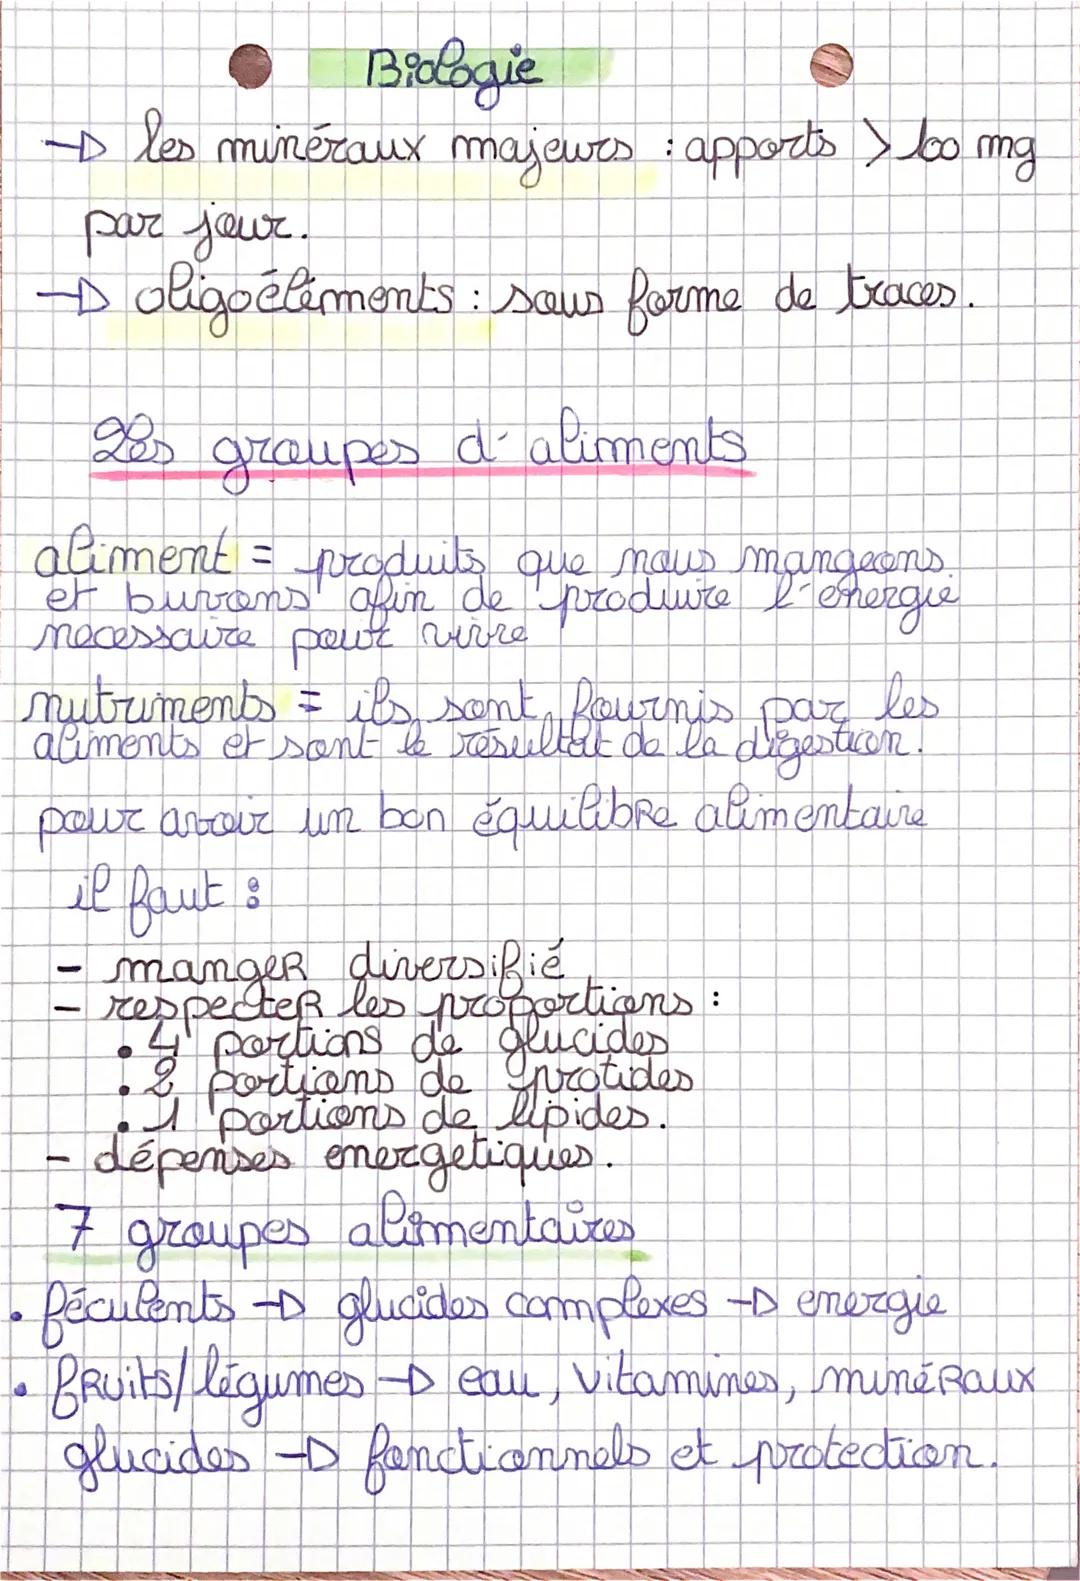 Biologie
→ les minéraux majeurs : apports > 100 mg
par jour.
→ oligoéléments : sous forme de traces.
Les groupes d'aliments
aliment = produits que nous mangeons
et buvons afin de produire l'énergie
necessaire pour vivre
nutriments = ils sont fournis par les
aliments et sont le résultat de la digestion.
pour avoir un bon équilibre alimentaire
il faut :
- manger diversifié
- respecter les proportions :
. 4 portions de glucides
. 2 portions de protides
. 1 portions de lipides.
- dépenses energetiques.
7 groupes alimentaires
. féculents → glucides complexes → energie
. fruits/légumes → eau, vitamines, minéraux
glucides → fonctionnels et protection.